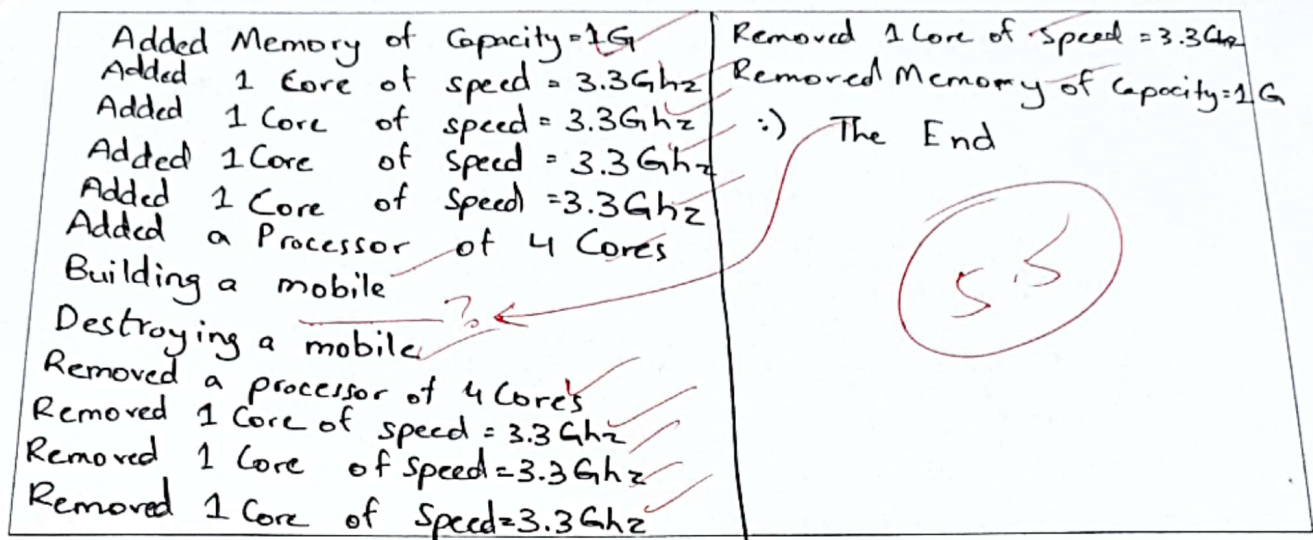 Added Memory of Capacity=1G
Added 1 Core of speed = 3.3Ghz
Added 1 Core of speed = 3.3Ghz
Added 1 Core of speed = 3.3Ghz
Added 1 Core of Speed =3.3Ghz
Added a Processor of 4 Cores
Building a mobile
?
Destroying a mobile
Removed a processor of 4 Cores
Removed 1 Core of speed = 3.3Ghz
Removed 1 Core of Speed=3.3Ghz
Removed 1 Core of Speed=3.3Ghz
Removed 1 Core of Speed =3.3Ghz
Removed Memory of Capacity=1G
:) The End
5.5